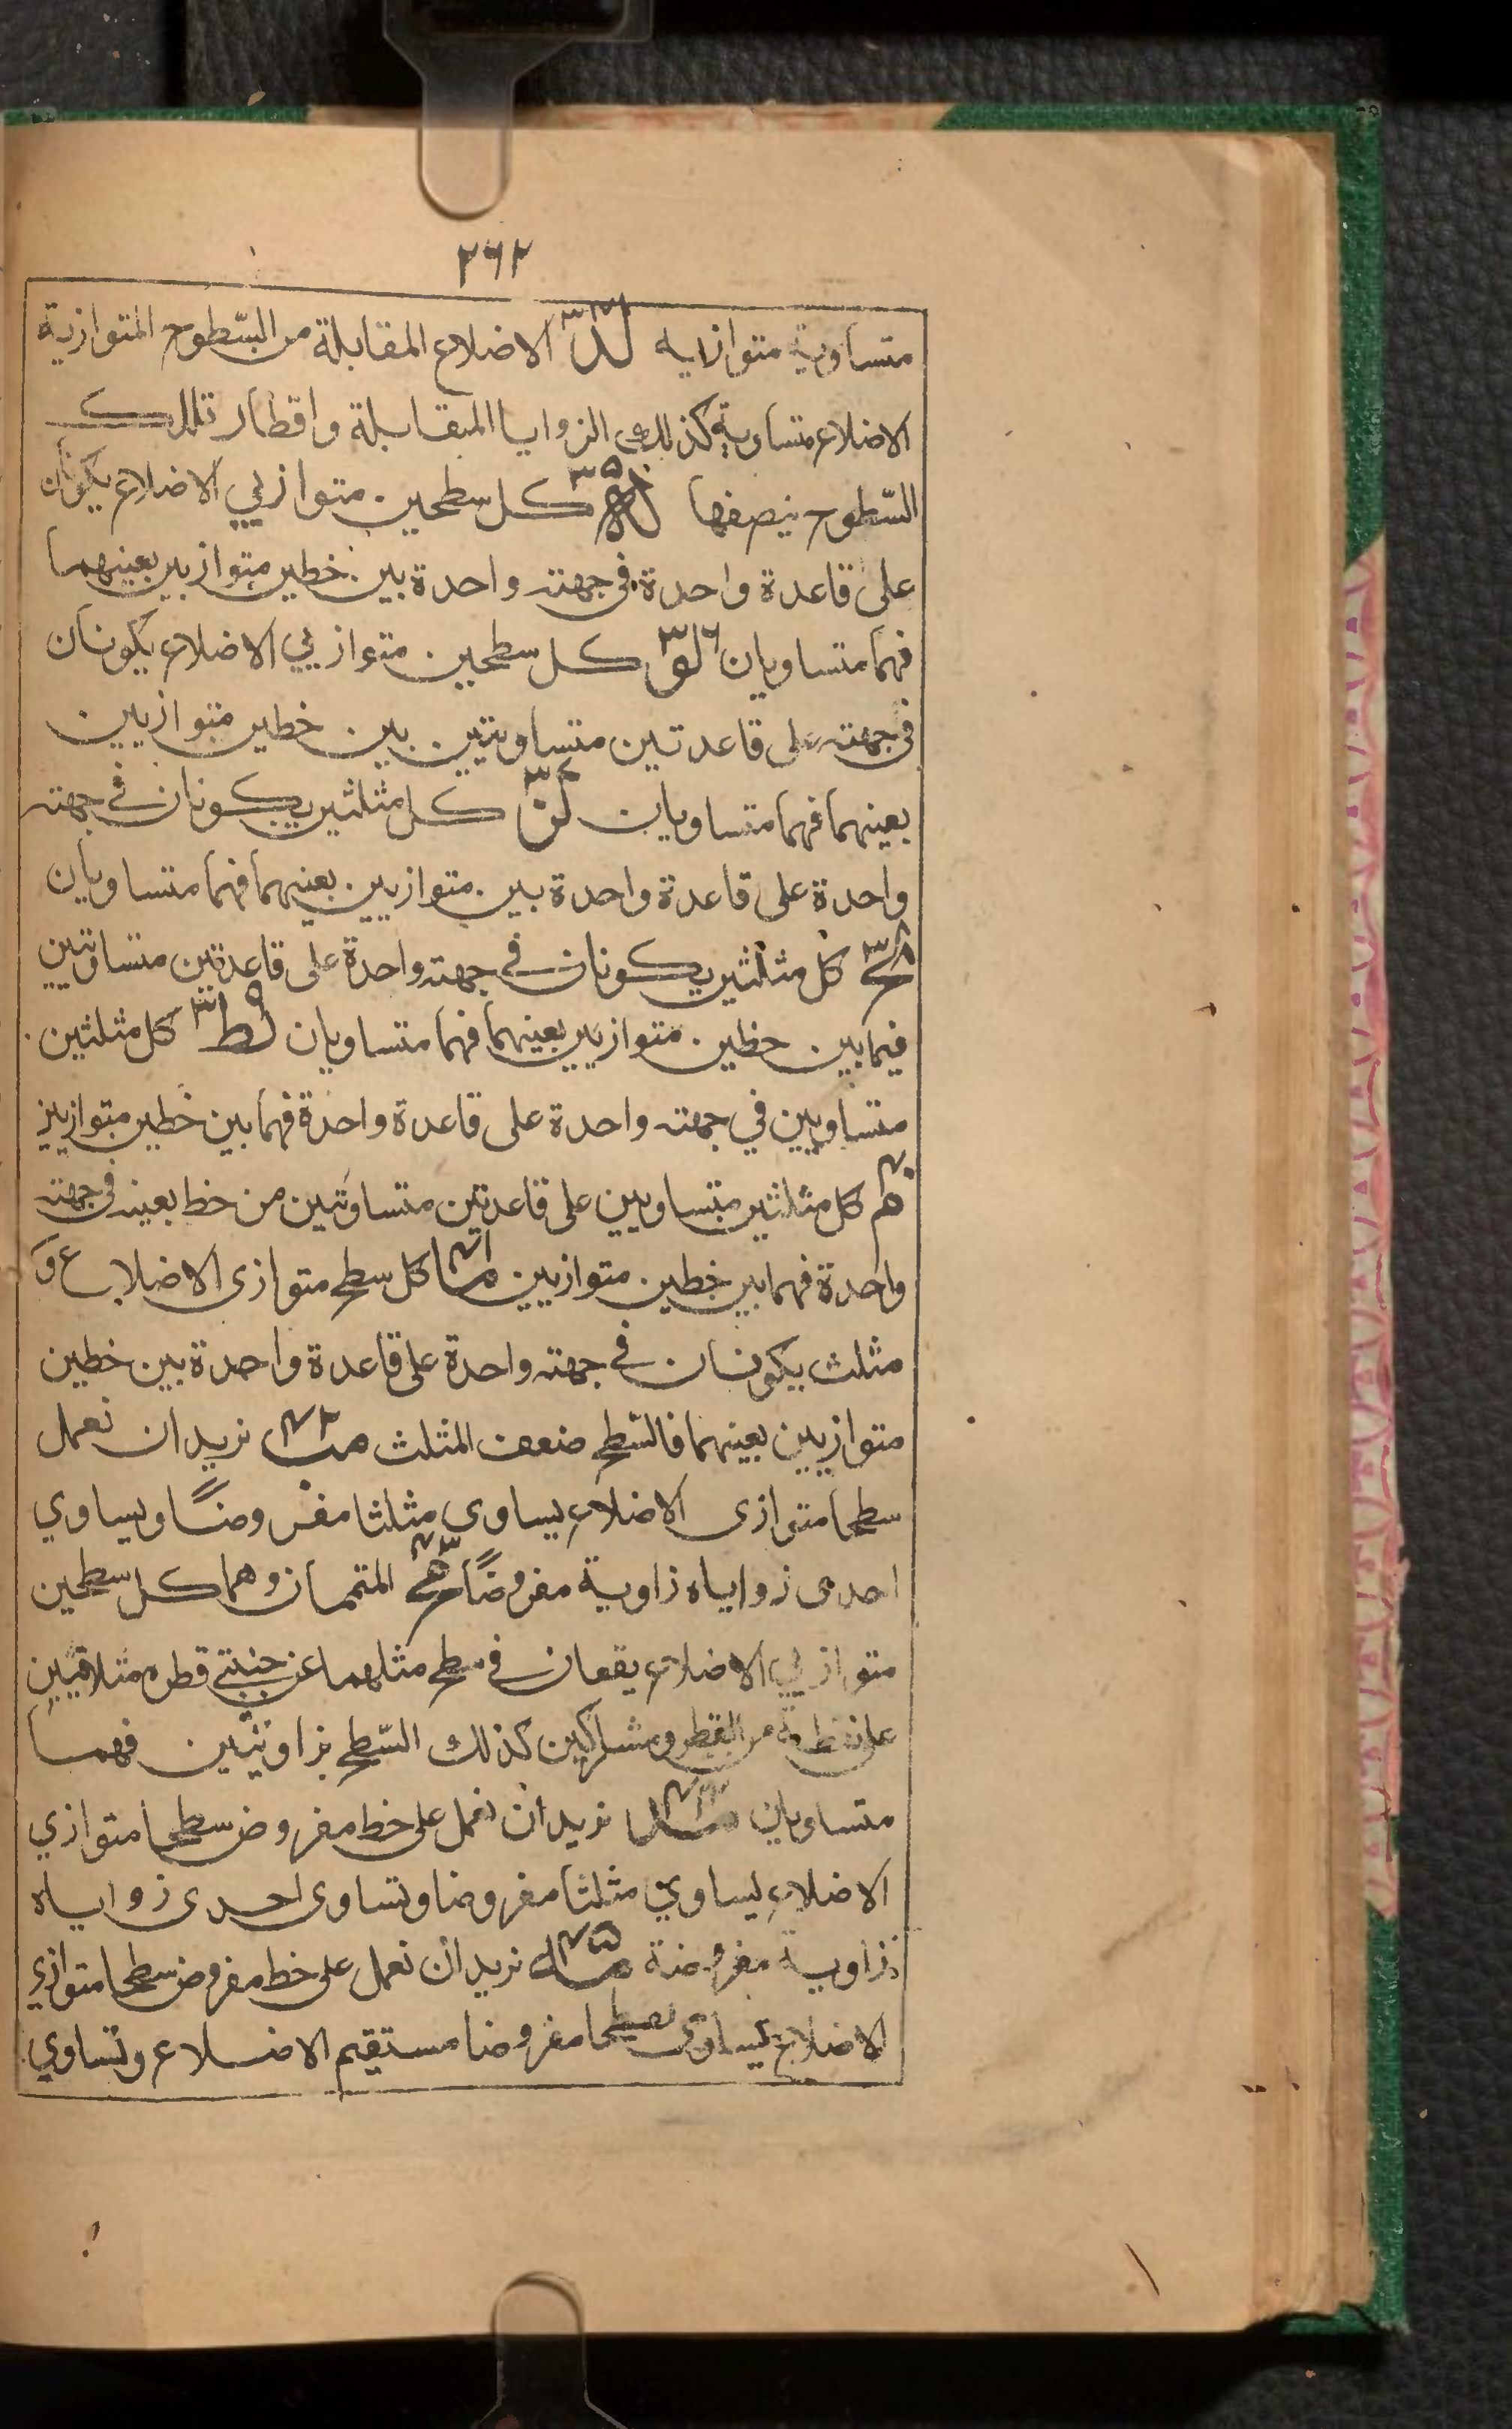 ٢٦٢
متساوية متوازيه لد ٣٤ الاضلاع المقابلة من السّطوح المتوازية
الاضلاع متساوية كذلك الزوايا المتقابلة واقطار تلك
السّطوح ينصفها له ٣٥ كل سطحين متوازيي الاضلاع يكونان
على قاعدة واحدة في جهته واحدة بين خطين متوازيين بعينهما
فهما متساويان لو ٣٦ كل سطحين متوازيي الاضلاع يكونان
في جهته على قاعدتين متساويتين بين خطين متوازيين
بعينهما فهما متساويان لز ٣٧ كل مثلثين يكونان في جهته
واحدة على قاعدة واحدة بين متوازيين بعينهما فهما متساويان
لح ٣٨ كل مثلثين يكونان في جهته واحدة على قاعدتين متساوتين
فيما بين خطين متوازيين بعينهما فهما متساويان لط ٣٩ كل مثلثين
متساويين في جهته واحدة على قاعدة واحدة فهما بين خطين متوازيين
م ٤٠ كل مثلثين متساويين على قاعدتين متساوتين من خط بعينه في جهته
واحدة فهما بين خطين متوازيين ما ٤١ كل سطح متوازى الاضلاع و
مثلث يكونان في جهته واحدة على قاعدة واحدة بين خطين
متوازيين بعينهما فالسّطح ضعف المثلث مب ٤٢ نريد ان نعمل
سطحا متوازى الاضلاع يساوي مثلثا مفروضًا ويساوي
احدى زواياه زاوية مفروضًا مج ٤٣ المتممان وهما كل سطحين
متوازيي الاضلاع يقعان في سطح مثلهما عن جنبتي قطره متلاقيين
على نقطة من القطر ومشاركين كذلك السّطح بزاويتين فهما
متساويان مد ٤٤ نريد ان نعمل على خط مفروض سطحا متوازي
الاضلاع يساوي مثلثا مفروضا وتساوى احدى زواياه
زاوية مفروضة مه ٤٥ نريد ان نعمل على خط مفروض سطحا متوازي
الاضلاع يساوى سطحا مفروضا مستقيم الاضلاع وتساوي